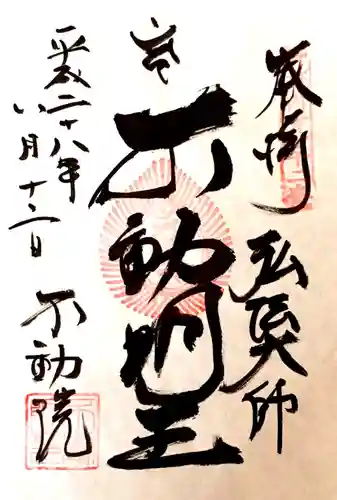 奉拝
弘法大師
不動明王
平成二十八年
八月十二日
不動院